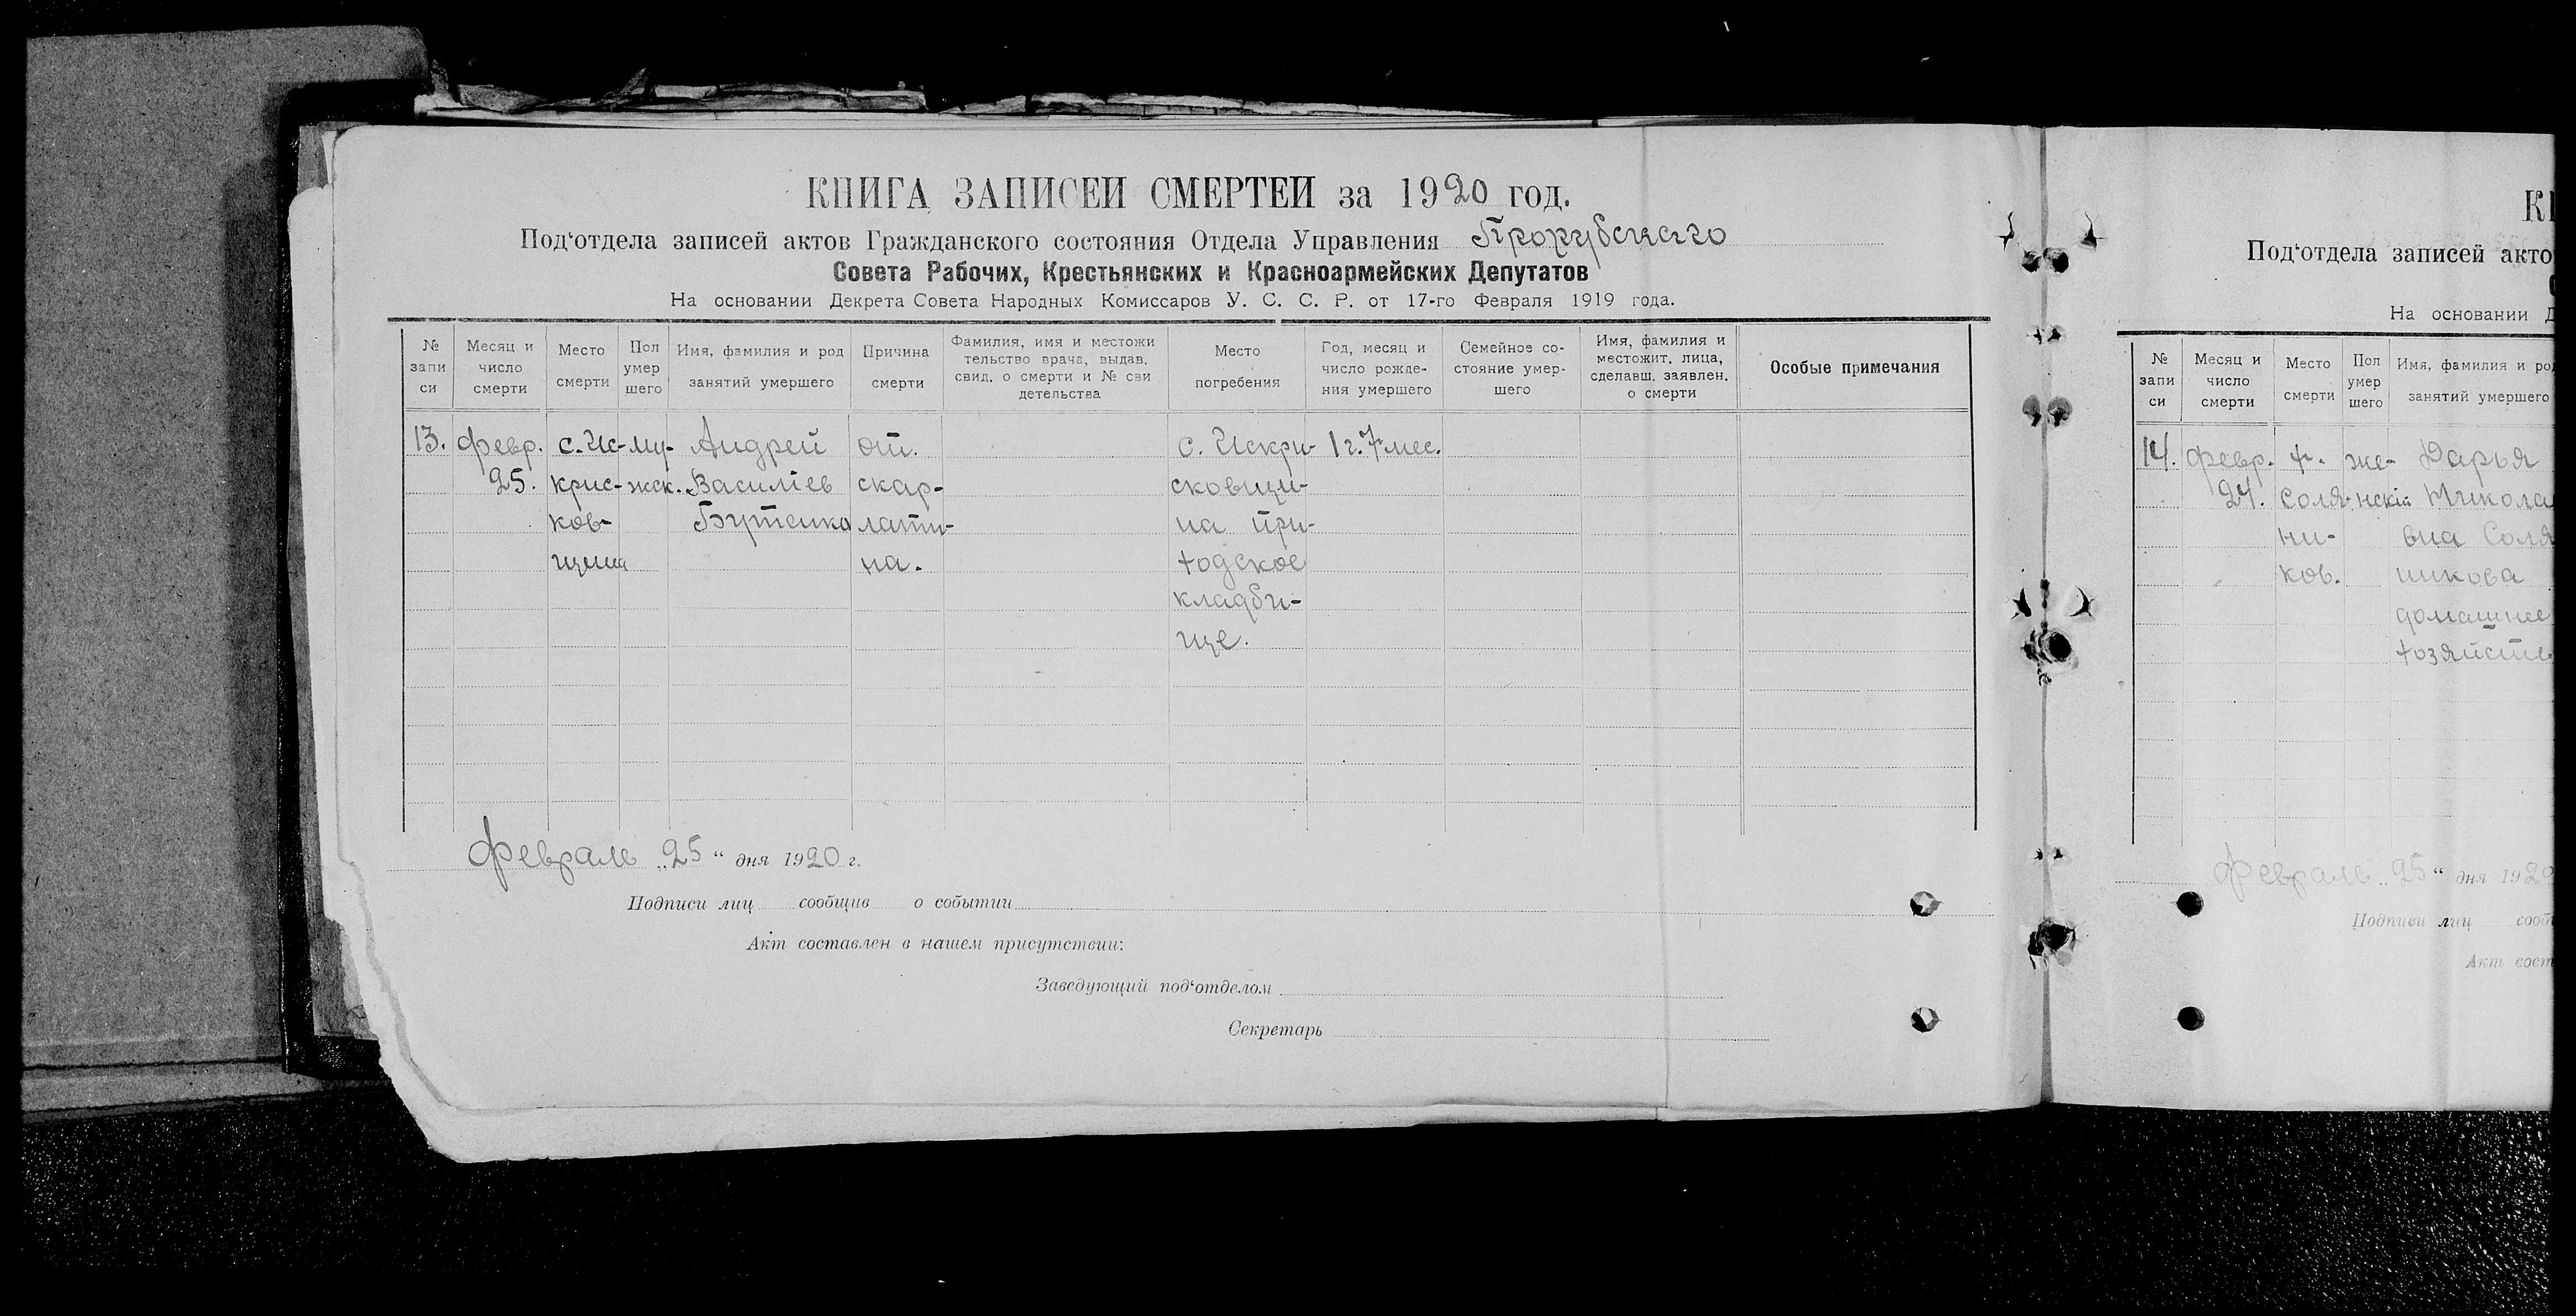 КНИГА ЗАПИСЕЙ СМЕРТЕЙ за 1920 год.
Под‘отдела записей актов Гражданского состояния Отдела Управления Прорубского
Совета Рабочих, Крестьянских и Красноармейских Депутатов
На основании Декрета Совета Народных Комиссаров У. С. С. Р. от 17-го Февраля 1919 года.
№ запи си
Месяц и число смерти
Место смерти
Пол умер шего
Имя, фамилия и род занятий умершего
Причина смерти
Фамилия, имя и местожи тельство врача, выдав. свид. о смерти и № сви детельства
Место погребения
Год, месяц и число рожде- ния умершего
Семейное со- стояние умер- шего
Имя, фамилия и местожит. лица, сделавш. заявлен. о смерти
Особые примечания
13. февр. с. Ис- му- Андрей от с. Искри- 1 г. 7 мес.
25. крис- жск. Василiев скар- сковщи-
ков- Бутенко лати- на при-
щина на. ходское
кладби-
ще.
Февраль „25“ дня 1920 г.
Подписи лиц сообщив о событии
Акт составлен в нашем присутствии:
Заведующий под‘отделом
Секретарь
КН
Под‘отдела записей акто
На основании Д
№ запи си
Месяц и число смерти
Место смерти
Пол умер шего
Имя, фамилия и род занятий умершего
14. февр. х. же- Дарья
24. Соля- нскiй Никола
ни- вна Соля
ков. никова
домашнее
хозяйств
Февраль „25“ дня 1920
Подписи лиц сооб
Акт сост